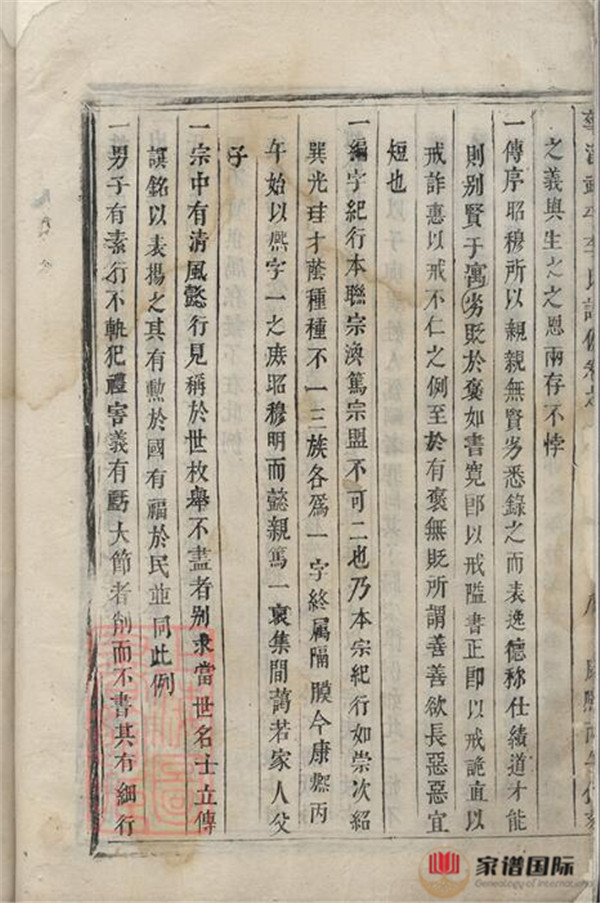 之義與生之之恩兩存不悖
一傳序昭穆所以親親無賢劣悉錄之而表逸德称仕績道才能
則别賢于寓劣貶於褒如書寬即以戒隘書正即以戒詭直以
戒詐惠以戒不仁之例至於有褒無貶所謂善善欲長惡惡宜
短也
一編字紀行本聯宗渙篤宗盟不可二也乃本宗紀行如崇次紹
巽光珪才蔭種種不一三族各為一字終属隔膜今康熈丙
午始以興字一之庶昭穆明而懿親篤一裒集間藹若家人父
子
一宗中有清風懿行見稱於世枚舉不盡者别求當世名士立傳
譔銘以表揚之其有勲於國有福於民並同此例
一男子有素行不軌犯禮害義有虧大節者削而不書其有細行
家谱国际
Genealogy of International